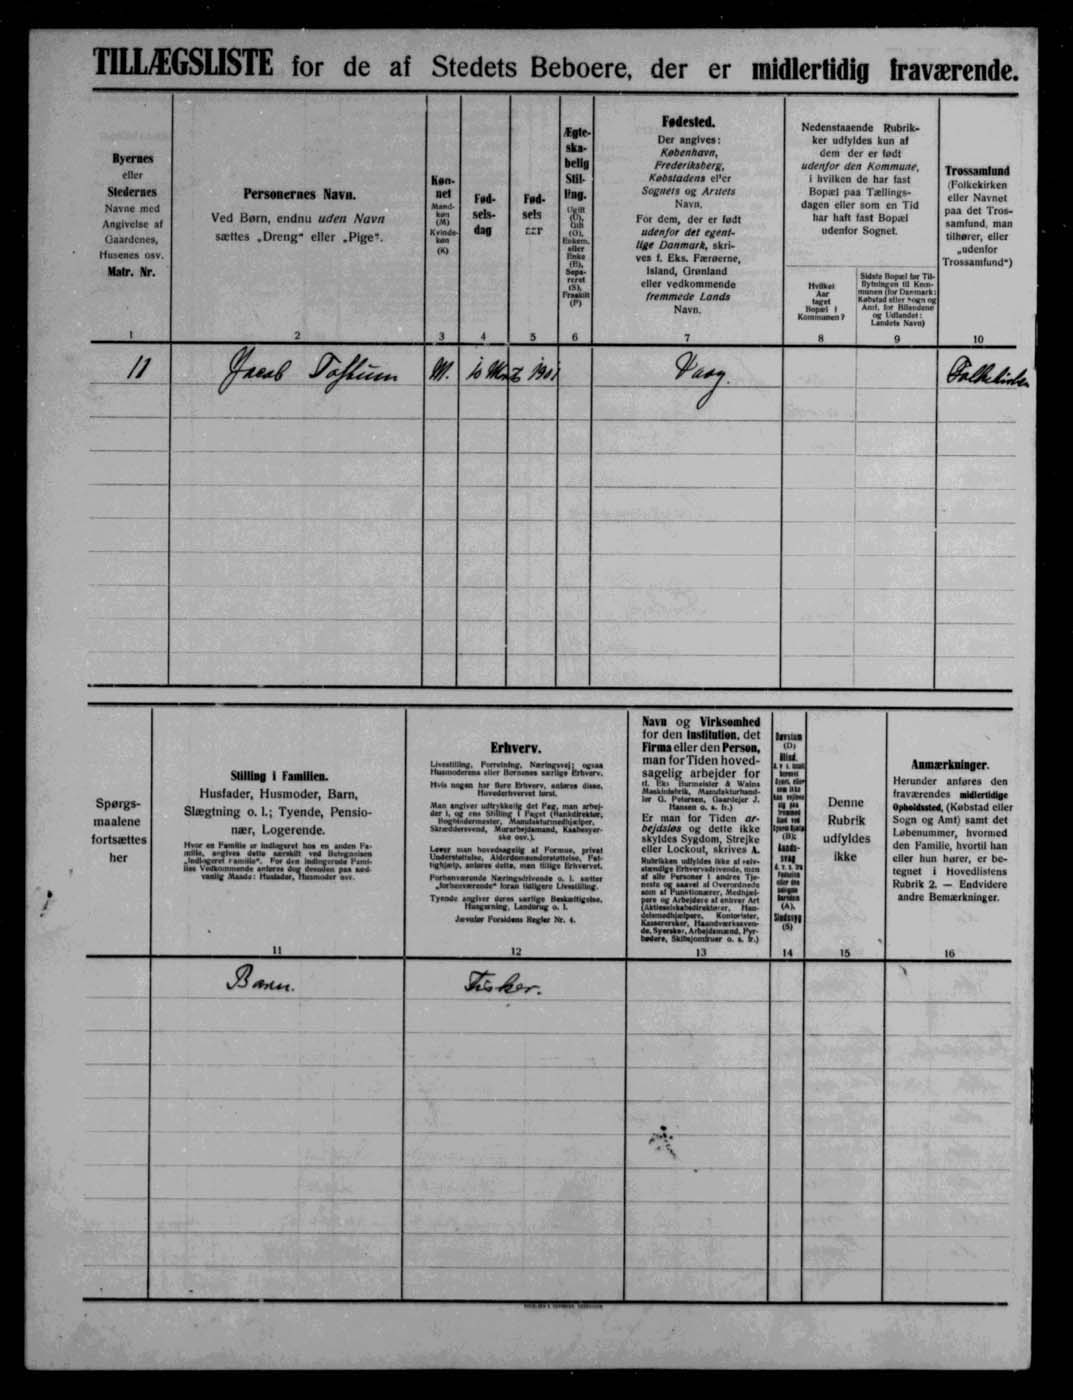 TILLÆGSLISTE for de af Stedets Beboere, der er midlertidig fraværende.
Byernes
eller
Stedernes
Navne med
Angivelse af
Gaardenes,
Husenes osv.
Matr. Nr.
Personernes Navn.
Ved Børn, endnu uden Navn
sættes „Dreng“ eller „Pige“.
Køn-
net
Mand-
køn
(M)
Kvinde-
køn
(K)
Fød-
sels-
dag
Fød-
sels
aar
Ægte-
ska-
belig
Stil-
ling.
Ugift
(U),
Gift
(G),
Enkem.
eller
Enke
(E),
Sepa-
reret
(S),
Fraskilt
(F)
Fødested.
Der angives:
København,
Frederiksberg,
Købstadens eller
Sognets og Amtets
Navn.
For dem, der er født
udenfor det egent-
lige Danmark, skri-
ves f. Eks. Færøerne,
Island, Grønland
eller vedkommende
fremmede Lands
Navn.
Nedenstaaende Rubrik-
ker udfyldes kun af
dem der er født
udenfor den Kommune,
i hvilken de har fast
Bopæl paa Tællings-
dagen eller som en Tid
har haft fast Bopæl
udenfor Sognet.
Hvilket
Aar
taget
Bopæl i
Kommunen?
Sidste Bopæl før Til-
flytningen til Kom-
munen (for Danmark:
Købstad eller Sogn og
Amt, for Bilandene
og Udlandet:
Landets Navn)
Trossamfund
(Folkekirken
eller Navnet
paa det Tros-
samfund, man
tilhører, eller
„udenfor
Trossamfund“)
1 2 3 4 5 6 7 8 9 10
11 Jacob Toftum M. 10 Marts 1901 Vaag. Folkekirken
Spørgs-
maalene
fortsættes
her
Stilling i Familien.
Husfader, Husmoder, Barn,
Slægtning o. l.; Tyende, Pensio-
nær, Logerende.
Hvor en Familie er indlogeret hos en anden Fa-
milie, angives dette særskilt ved Betegnelsen
„Indlogeret Familie“. For den indlogerede Fami-
lies Vedkommende anføres dog desuden paa sæd-
vanlig Maade: Husfader, Husmoder osv.
Erhverv.
Livsstilling, Forretning, Næringsvej; ogsaa
Husmoderens eller Børnenes særlige Erhverv.
Hvis nogen har flere Erhverv, anføres disse,
Hovederhvervet først.
Man angiver udtrykkelig det Fag, man arbej-
der i, og ens Stilling i Faget (Bankdirektør,
Bogbindermester, Manufakturmedhjælper,
Skræddersvend, Murarbejdsmand, Kaabesyer-
ske osv.).
Lever man hovedsagelig af Formue, privat
Understøttelse, Alderdomsunderstøttelse, Fat-
tighjælp, anføres dette, men tillige Erhvervet.
Forhenværende Næringsdrivende o. l. sætter
„forhenværende“ foran tidligere Livsstilling.
Tyende angiver deres særlige Beskæftigelse,
Husgerning, Landbrug o. l.
Jævnfør Forsidens Regler Nr. 4.
Navn og Virksomhed
for den Institution, det
Firma eller den Person,
man for Tiden hoved-
sagelig arbejder for
(f. Eks Burmeister & Wains
Maskinfabrik, Manufakturhand-
ler G. Petersen, Gaardejer J.
Hansen o. s. fr.)
Er man for Tiden ar-
bejdsløs og dette ikke
skyldes Sygdom, Strejke
eller Lockout, skrives A.
Rubrikken udfyldes ikke af selv-
stændige Erhvervsdrivende, men
af alle Personer i andres Tje-
neste og saavel af Overordnede
som af Funktionærer, Medhjæl-
pere og Arbejdere af enhver Art
(Aktieselskabsdirektører, Han-
delsmedhjælpere, Kontorister,
Kassererske, Haandværkssven-
de, Syersker, Arbejdsmænd, Fyr-
bødere, Skibsjomfruer o. s. fr.)
Døvstum
(D)
Blind,
(B);
Aands-
svag
(A),
Sindssyg
(S)
Denne
Rubrik
udfyldes
ikke
Anmærkninger.
Herunder anføres den
fraværendes midlertidige
Opholdssted, (Købstad eller
Sogn og Amt) samt det
Løbenummer, hvormed
den Familie, hvortil han
eller hun hører, er be-
tegnet i Hovedlistens
Rubrik 2. — Endvidere
andre Bemærkninger.
11 12 13 14 15 16
Barn. Fisker.